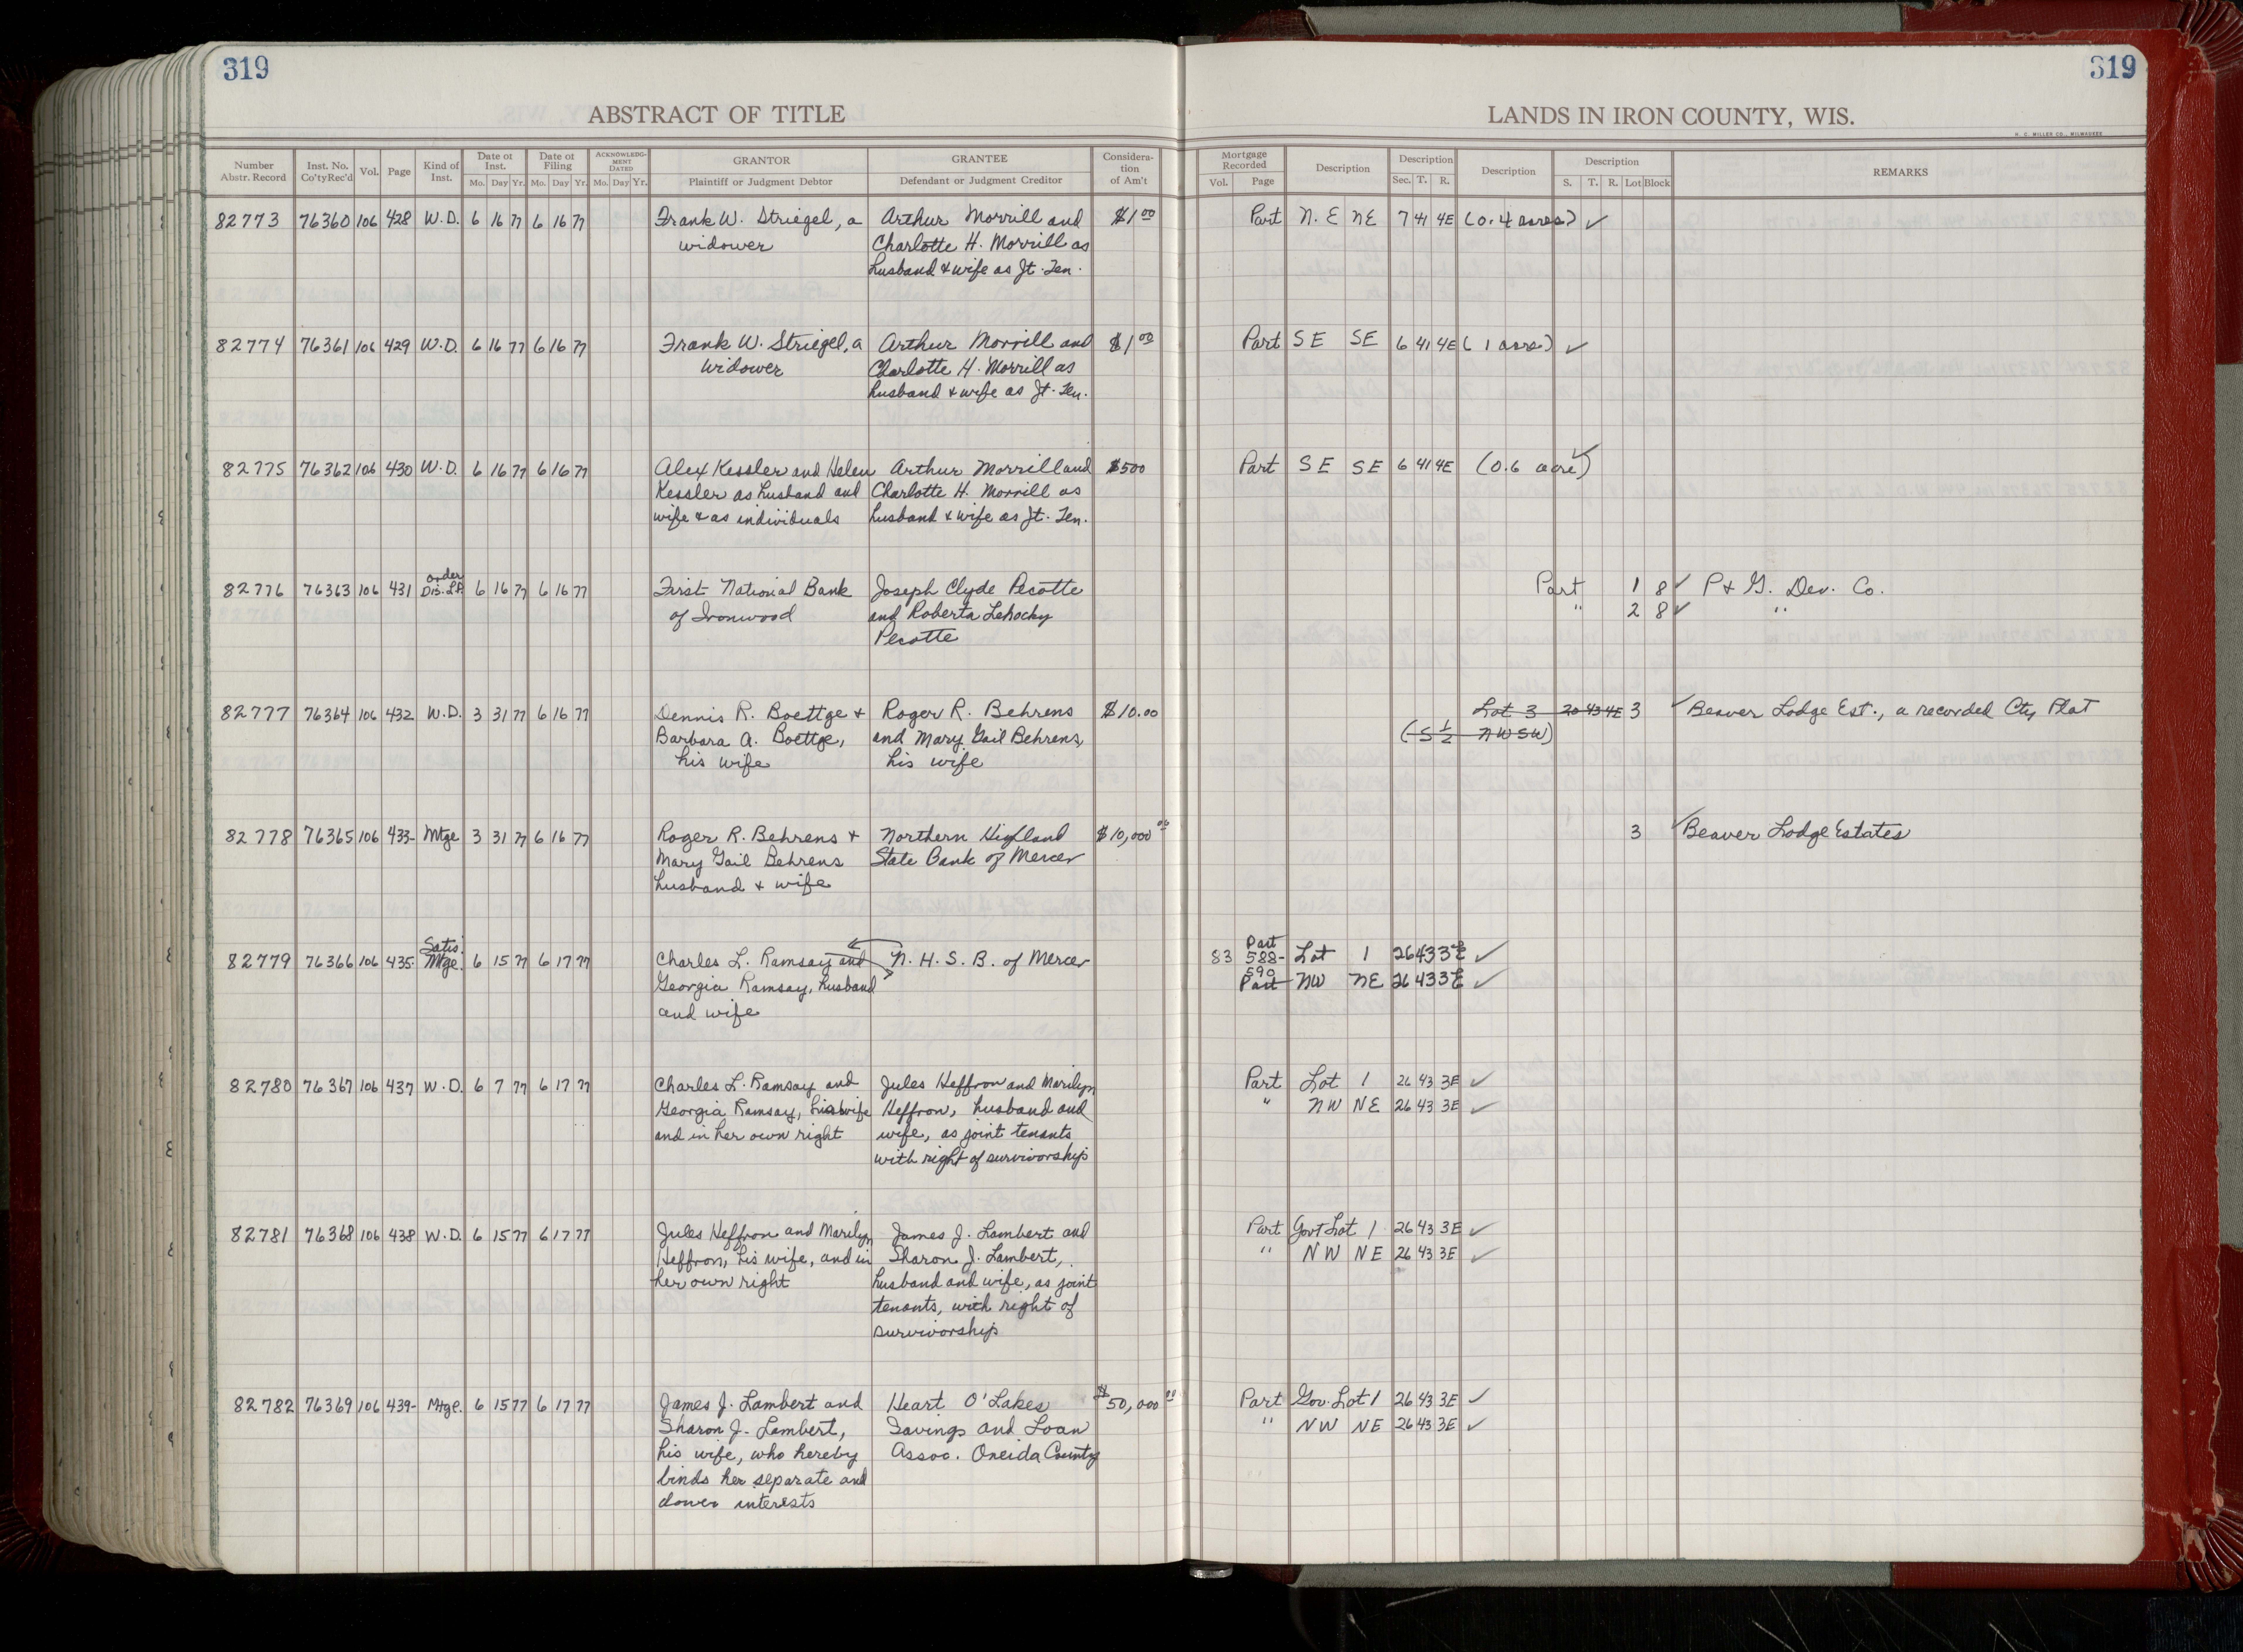 319
319
ABSTRACT OF TITLE
LANDS IN IRON COUNTY, WIS.
H. C. MILLER CO., MILWAUKEE
Number Abstr. Record | Inst. No. Co'ty Rec'd | Vol. | Page | Kind of Inst. | Date of Inst. Mo. Day Yr. | Date of Filing Mo. Day Yr. | ACKNOWLEDGMENT DATED Mo. Day Yr. | GRANTOR Plaintiff or Judgment Debtor | GRANTEE Defendant or Judgment Creditor | Consideration of Am't | Mortgage Recorded Vol. Page | Description | Description Sec. T. R. | Description | Description S. T. R. Lot Block | REMARKS
82773 76360 106 428 W.D. 6 16 77 6 16 77 Frank W. Striegel, a Arthur Morrill and $1 00 Part N.E NE 7 41 4E (0.4 acres) ✓
widower Charlotte H. Morrill as
husband & wife as Jt. Ten.
82774 76361 106 429 W.D. 6 16 77 6 16 77 Frank W. Striegel, a Arthur Morrill and $1 00 Part SE SE 6 41 4E (1 acre) ✓
widower Charlotte H. Morrill as
husband & wife as Jt. Ten.
82775 76362 106 430 W.D. 6 16 77 6 16 77 Alex Kessler and Helen Arthur Morrill and $500 Part SE SE 6 41 4E (0.6 acre) ✓
Kessler as husband and Charlotte H. Morrill as
wife & as individuals husband & wife as Jt. Ten.
order
82776 76363 106 431 Dis. L.P. 6 16 77 6 16 77 First National Bank Joseph Clyde Pecotte Part 1 8 ✓ P & G. Dev. Co.
of Ironwood and Roberta Lehocky " 2 8 ✓ "
Pecotte
82777 76364 106 432 W.D. 3 31 77 6 16 77 Dennis R. Boettge & Roger R. Behrens $10.00 Lot 3 20 43 4E 3 ✓ Beaver Lodge Est., a recorded Cty Plat
Barbara A. Boettge, and Mary Gail Behrens, (S ½ NW SW)
his wife his wife
82778 76365 106 433- Mtge 3 31 77 6 16 77 Roger R. Behrens & Northern Highland $10,000 00 3 ✓ Beaver Lodge Estates
Mary Gail Behrens State Bank of Mercer
husband & wife
Satis. Part
82779 76366 106 435- Mtge. 6 15 77 6 17 77 Charles L. Ramsay and N. H. S. B. of Mercer 83 588- Lot 1 26 43 3E ✓
590
Georgia Ramsay, husband Part NW NE 26 43 3E ✓
and wife
82780 76367 106 437 W.D. 6 7 77 6 17 77 Charles L. Ramsay and Jules Heffron and Marilyn Part Lot 1 26 43 3E ✓
Georgia Ramsay, his wife Heffron, husband and " NW NE 26 43 3E ✓
and in her own right wife, as joint tenants
with right of survivorship
82781 76368 106 438 W.D. 6 15 77 6 17 77 Jules Heffron and Marilyn James J. Lambert and Part Govt Lot 1 26 43 3E ✓
Heffron, his wife, and in Sharon J. Lambert, " NW NE 26 43 3E ✓
her own right husband and wife, as joint
tenants, with right of
survivorship
82782 76369 106 439- Mtge. 6 15 77 6 17 77 James J. Lambert and Heart O'Lakes $50,000 00 Part Gov. Lot 1 26 43 3E ✓
Sharon J. Lambert, Savings and Loan " NW NE 26 43 3E ✓
his wife, who hereby Assoc. Oneida County
binds her separate and
dower interests